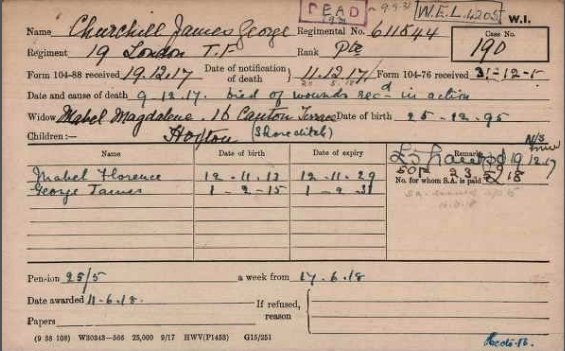 DEAD 9.9.31 W.E.L. 4205 W.I.
Name Churchill James George Regimental No. 611544 Case No.
Regiment 19 London T.F Rank Pte 190
Form 104-88 received 19.12.17 Date of notification of death 11.12.17 Form 104-76 received 31-12-1
Date and cause of death 9.12.17. Died of wounds recd in action
Widow Mabel Magdalene. 16 Canton Terrace Date of birth 25-12-95
Children:— Hoxton (Shoreditch)
Name Date of birth Date of expiry Remarks
Mabel Florence 12-11-13 12-11-29
George James 1-2-15 1-2-31 No. for whom S.A. is paid
Pension 25/5 a week from 17.6.18
Date awarded 11.6.18. If refused, reason
Papers
(9 36 108) W30243—566 25,000 9/17 HWV(P1453) G15/251